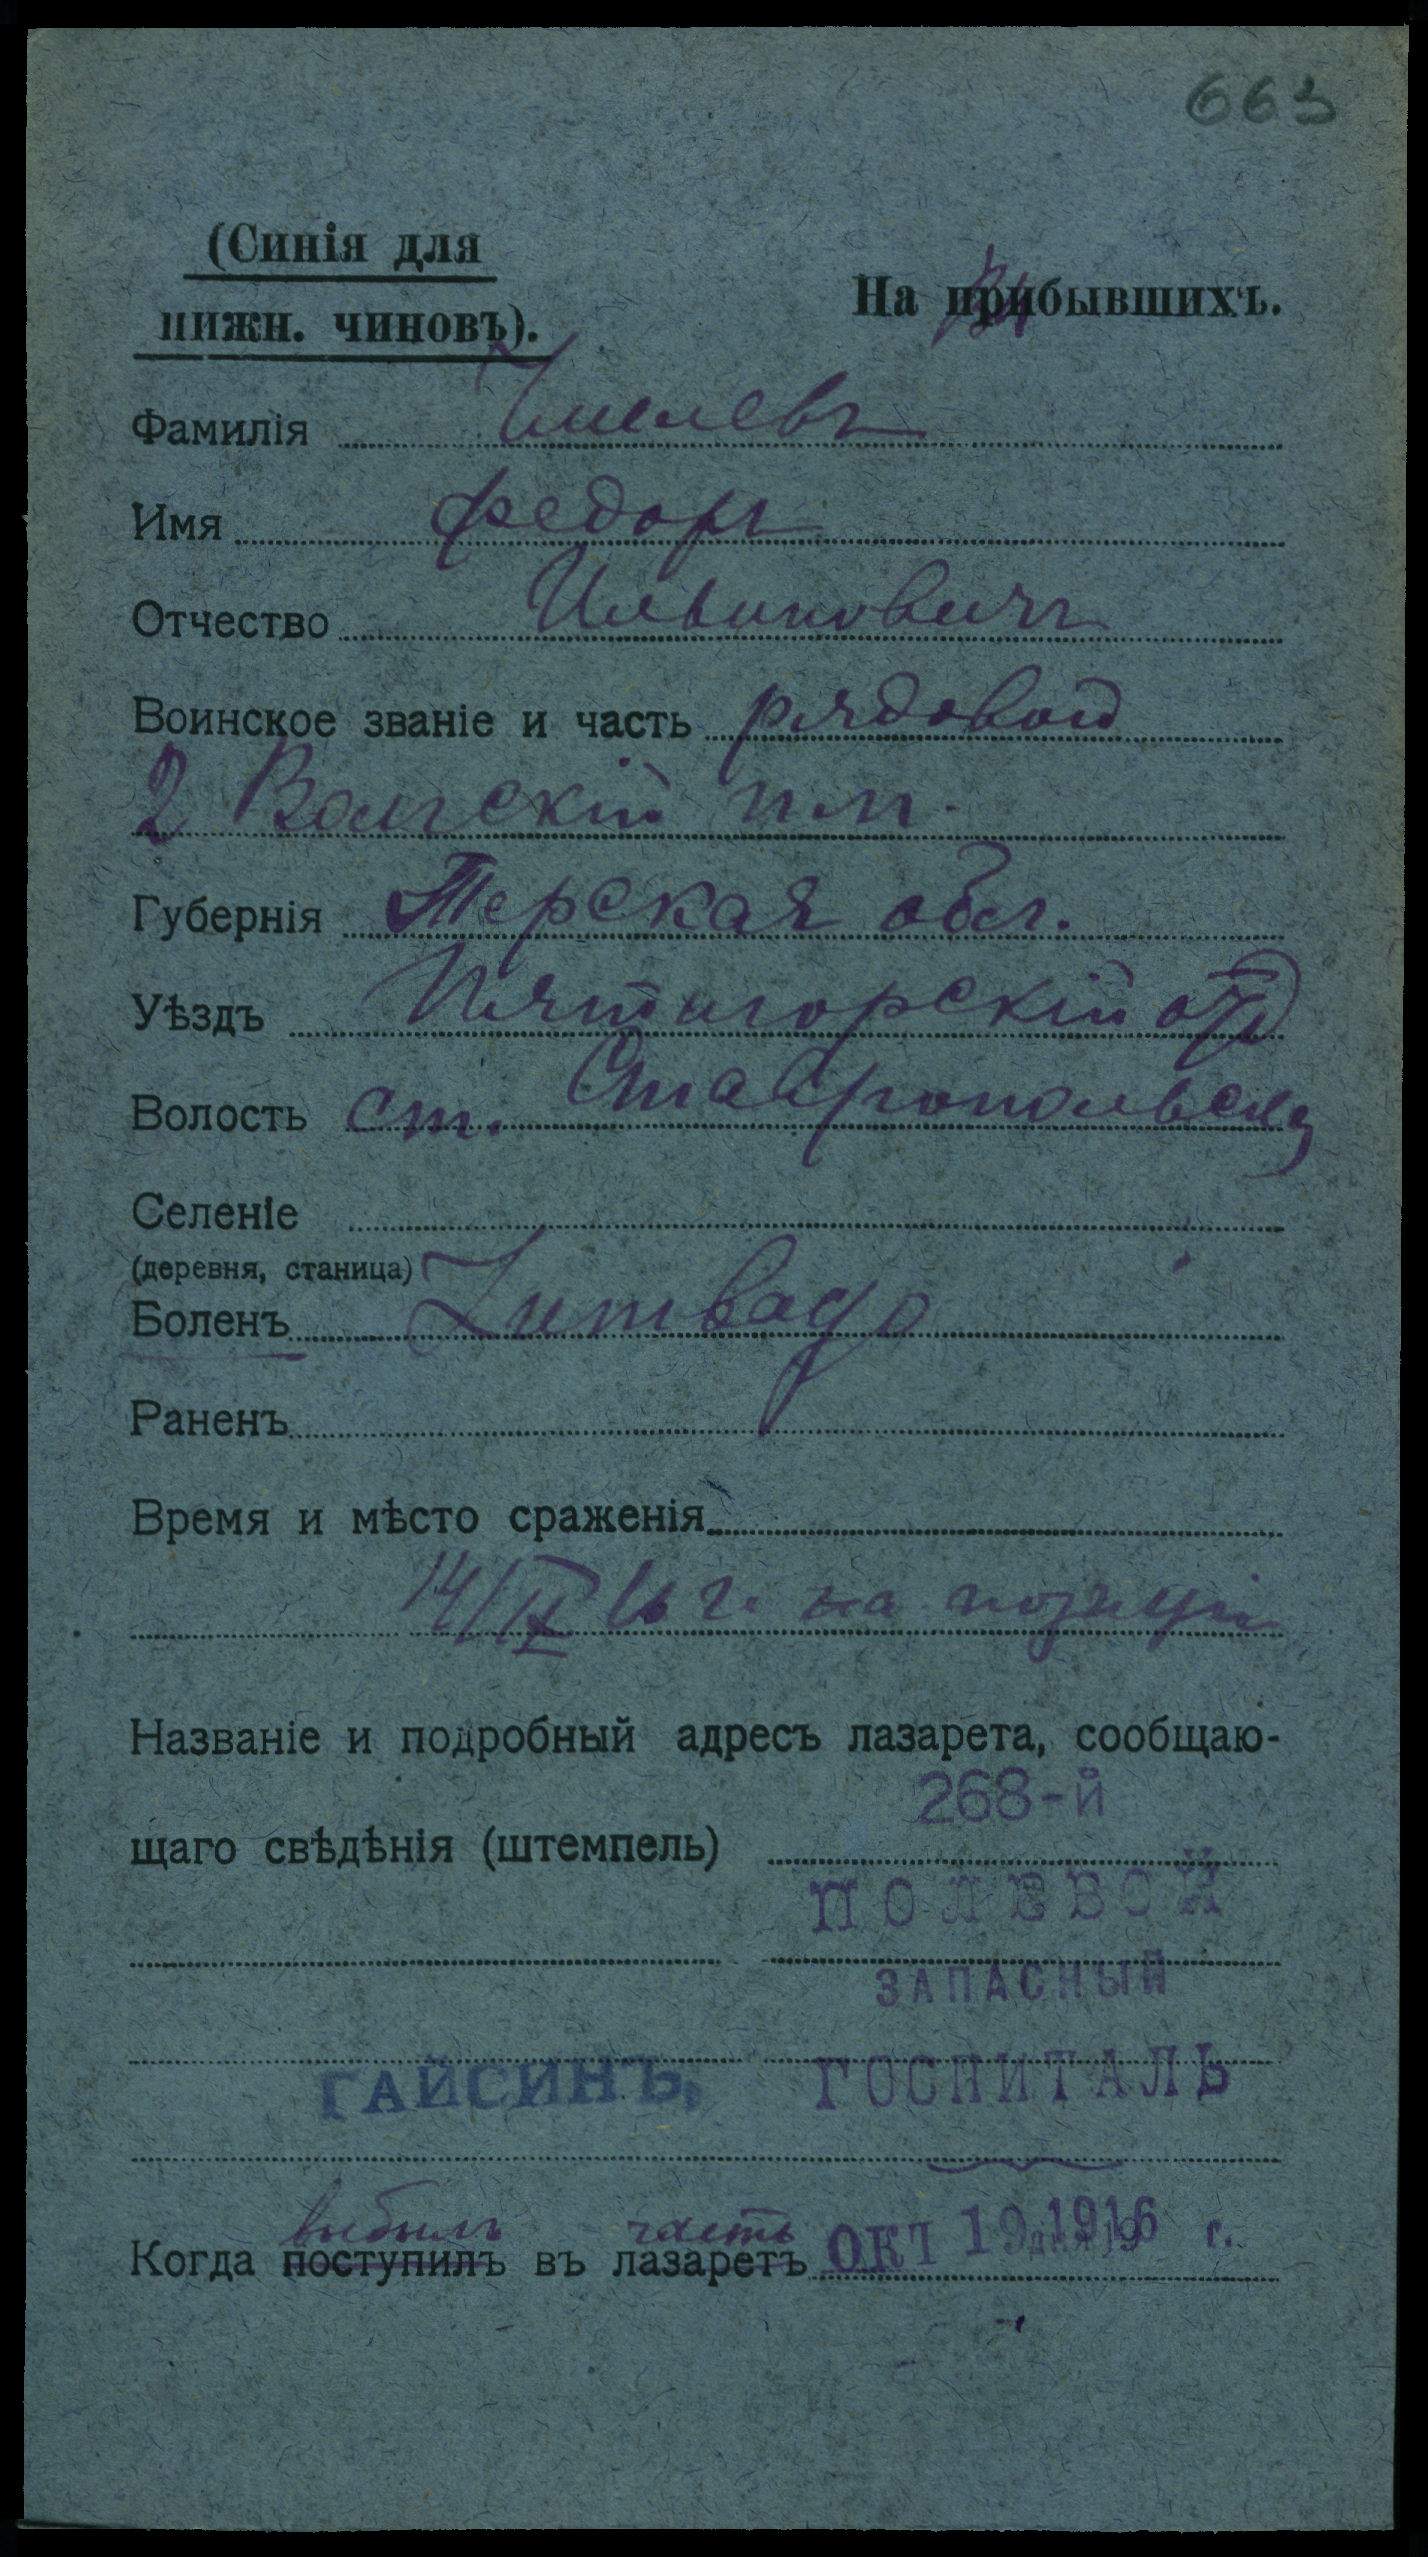 663
(Синія для
нижн. чиновъ).
На прибывшихъ.
вы
Фамилія Чмелевъ
Имя Федоръ
Отчество Ильиновичъ
Воинское званіе и часть рядовой
2 Волгскій пл.
Губернія Терская обл.
Уѣздъ Пятигорскій от
Волость ст. Ставропольск
Селеніе
(деревня, станица)
Боленъ
Раненъ
Время и мѣсто сраженія
14/IX 16 г. на позиціи
Названіе и подробный адресъ лазарета, сообщаю-
268-й
щаго свѣдѣнія (штемпель)
ПОЛЕВОЙ
ЗАПАСНЫЙ
ГАЙСИНЪ, ГОСПИТАЛЬ
выбылъ часть
Когда поступилъ въ лазаретъ ОКТ 19 1916 г.